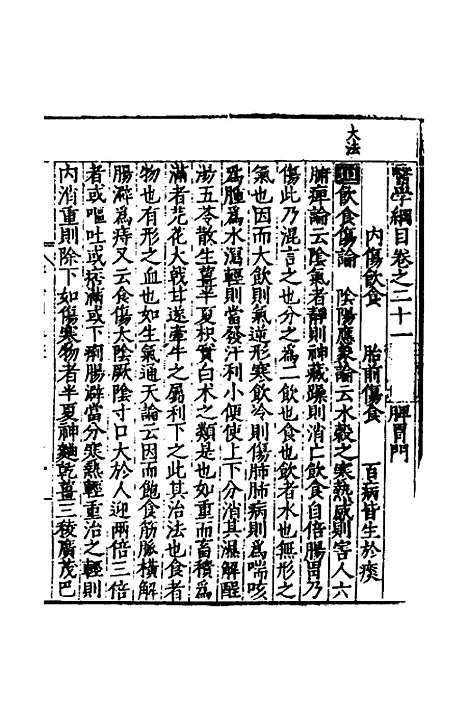 大法
醫學綱目卷之二十一　脾胃門
內傷飲食　胎前傷食　百病皆生於痰
飲食傷論　陰陽應象論云水穀之寒熱感則害人六
腑痺論云陰氣者靜則神藏躁則消亡飲食自倍腸胃乃
傷此乃混言之也分之為二飲也食也飲者水也無形之
氣也因而大飲則氣逆形寒飲冷則傷肺肺病則為喘咳
為腫為水瀉輕則當發汗利小便使上下分消其濕解酲
湯五苓散生薑半夏枳實白朮之類是也如重而畜積為
滿者芫花大戟甘遂牽牛之屬利下之此其治法也食者
物也有形之血也如生氣通天論云因而飽食筋脈橫解
腸澼為痔又云食傷太陰厥陰寸口大於人迎兩倍三倍
者或嘔吐或痞滿或下痢腸澼當分寒熱輕重治之輕則
內消重則除下如傷寒物者半夏神麯乾薑三稜廣茂巴